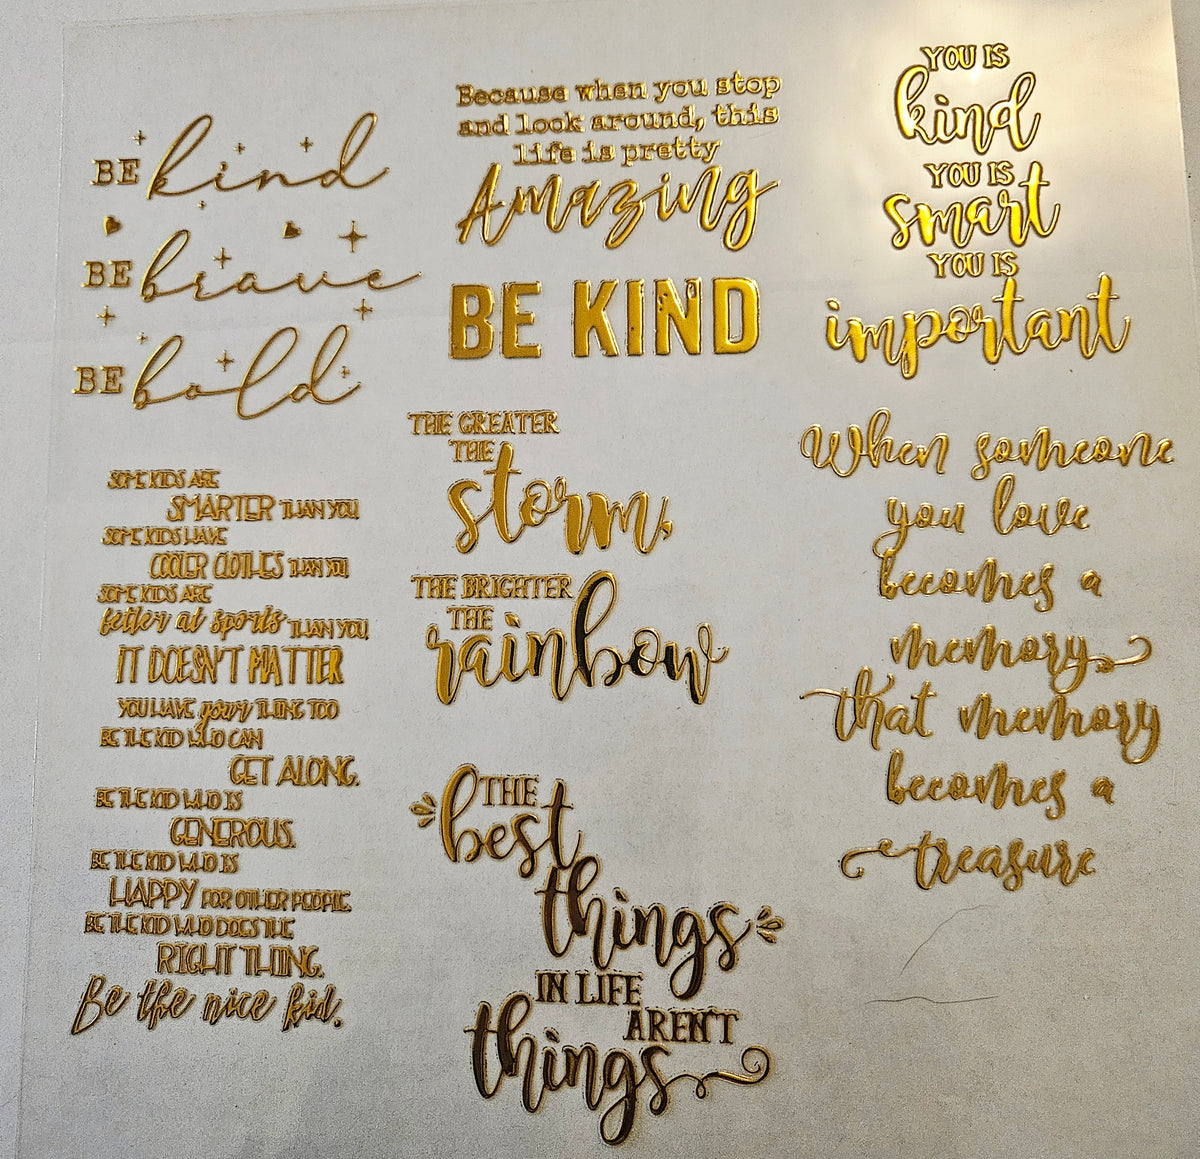 BE kind
BE brave
BE bold
SOME KIDS ARE
SMARTER THAN YOU,
SOME KIDS HAVE
COOLER CLOTHES THAN YOU,
SOME KIDS ARE
better at sports THAN YOU,
IT DOESN'T MATTER
YOU HAVE your THING TOO
BE THE KID WHO CAN
GET ALONG.
BE THE KID WHO IS
GENEROUS.
BE THE KID WHO IS
HAPPY FOR OTHER PEOPLE.
BE THE KID WHO DOES THE
RIGHT THING.
Be the nice kid.
Because when you stop
and look around, this
life is pretty
Amazing
BE KIND
THE GREATER
THE
storm,
THE BRIGHTER
THE
rainbow
THE
best
things
IN LIFE
AREN'T
things
YOU IS
kind
YOU IS
smart
YOU IS
important
When someone
you love
becomes a
memory
that memory
becomes a
treasure